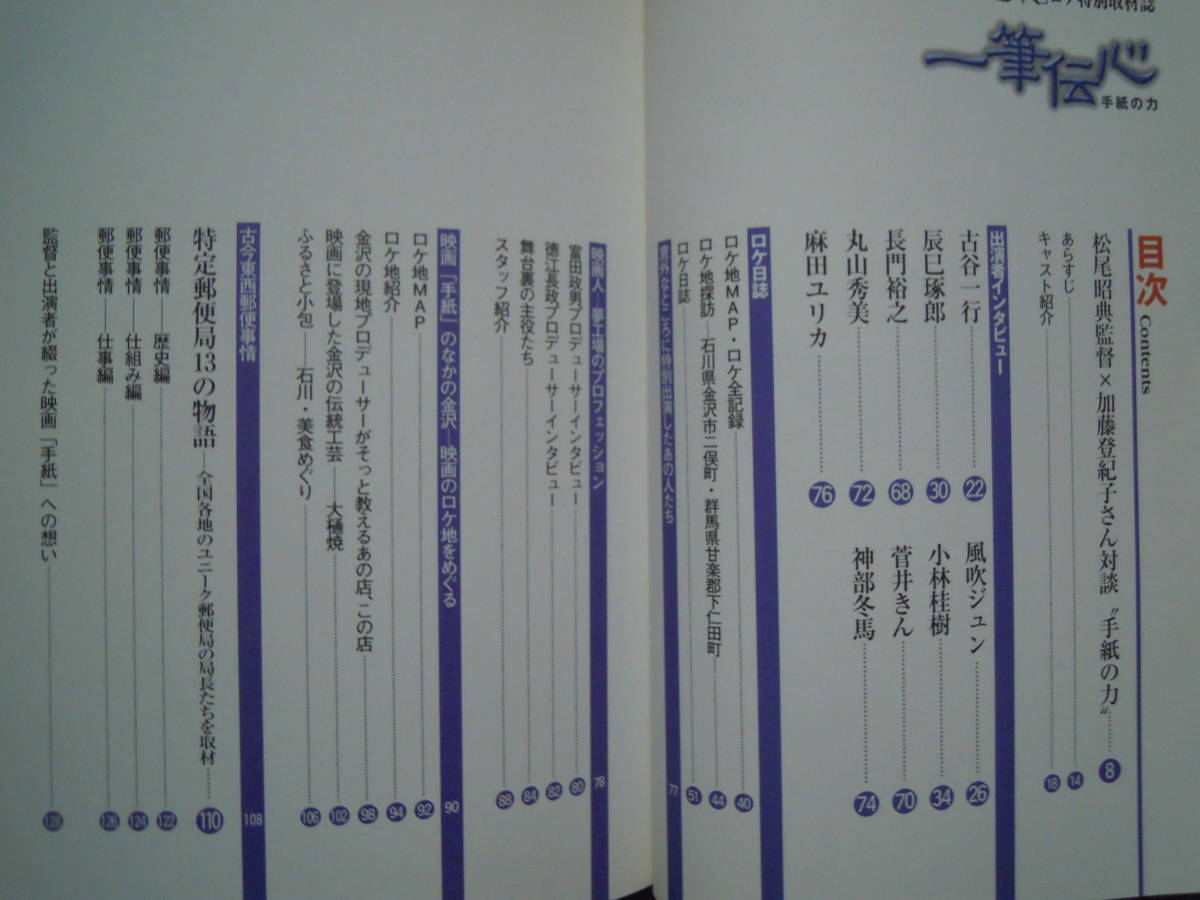 特別取材誌
一筆伝心
手紙の力
目次 Contents
松尾昭典監督×加藤登紀子さん対談 〝手紙の力〟……8
あらすじ……14
キャスト紹介……18
出演者インタビュー
古谷一行……22
風吹ジュン……26
辰巳琢郎……30
小林桂樹……34
長門裕之……68
菅井きん……70
丸山秀美……72
神部冬馬……74
麻田ユリカ……76
ロケ日誌
ロケ地MAP・ロケ全記録……40
ロケ地探訪―石川県金沢市二俣町・群馬県甘楽郡下仁田町……44
ロケ日誌……51
意外なところに特別出演したあの人たち 77
映画人―夢工場のプロフェッション 78
富田政男プロデューサーインタビュー……80
徳江長政プロデューサーインタビュー……82
舞台裏の主役たち……84
スタッフ紹介……88
映画「手紙」のなかの金沢―映画のロケ地をめぐる 90
ロケ地MAP……92
ロケ地紹介……94
金沢の現地プロデューサーがそっと教えるあの店、この店……98
映画に登場した金沢の伝統工芸――大樋焼……102
ふるさと小包――石川・美食めぐり……106
古今東西郵便事情 108
特定郵便局13の物語―全国各地のユニーク郵便局の局長たちを取材……110
郵便事情――歴史編……122
郵便事情――仕組み編……124
郵便事情――仕事編……126
監督と出演者が綴った映画「手紙」への想い……128